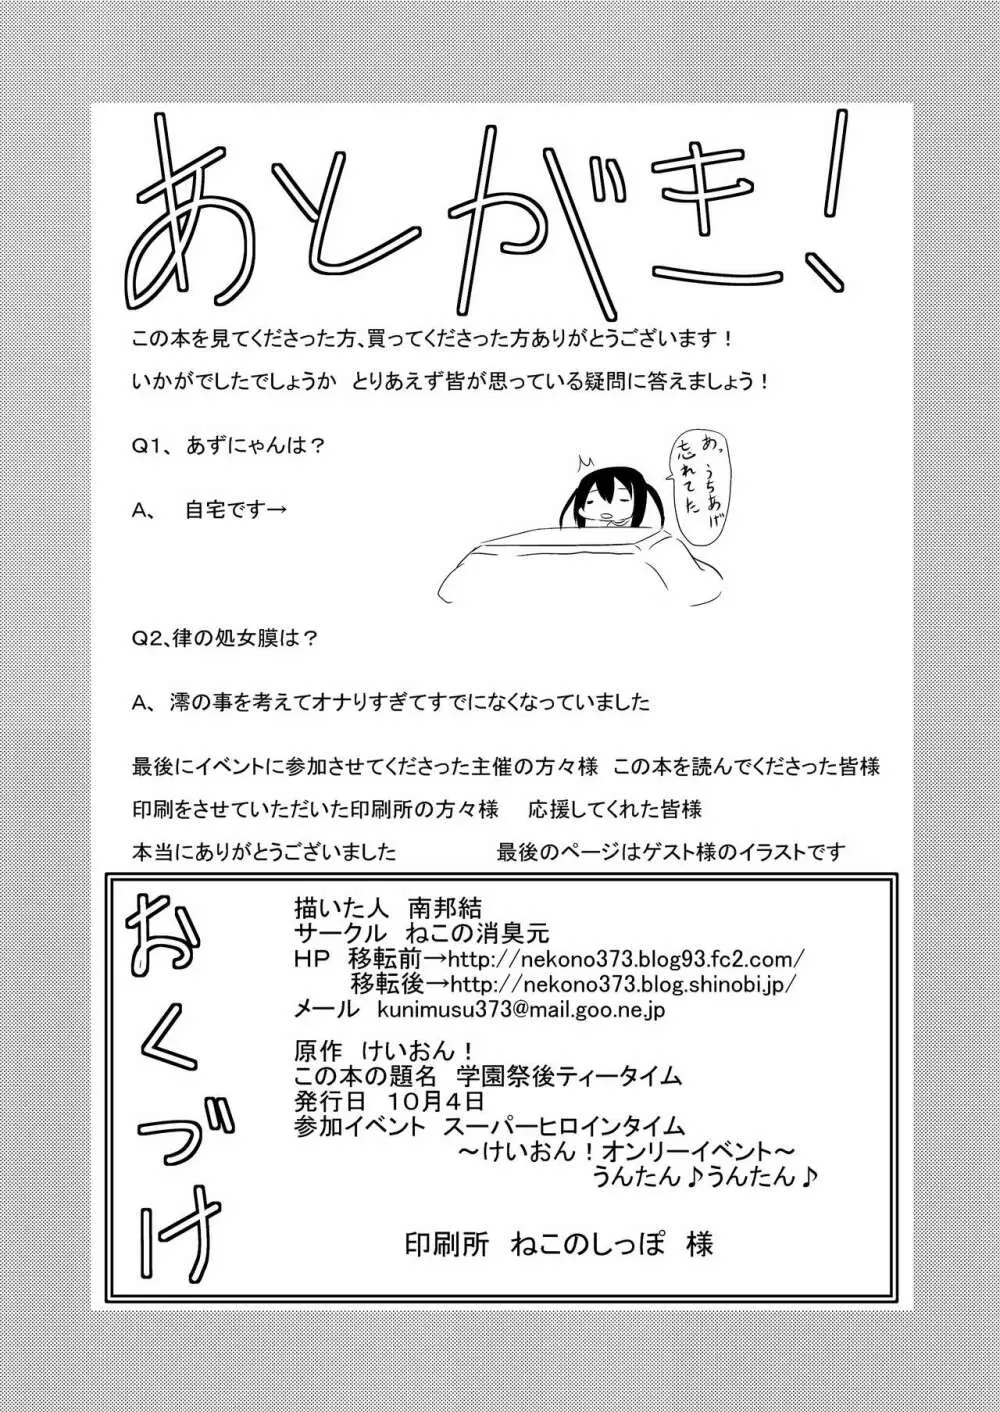 あとがき！
この本を見てくださった方、買ってくださった方ありがとうございます！
いかがでしたでしょうか　とりあえず皆が思っている疑問に答えましょう！
Q1、 あずにゃんは？
あっ、うちあげ
忘れてた
A、　自宅です→
最後にイベントに参加させてくださった主催の方々様　この本を読んでくださった皆様
印刷をさせていただいた印刷所の方々様　応援してくれた皆様
本当にありがとうございました　最後のページはゲスト様のイラストです
おくづけ
描いた人　南邦結
サークル　ねこの消臭元
HP　移転前→http://nekono373.blog93.fc2.com/
移転後→http://nekono373.blog.shinobi.jp/
メール　kunimusu373@mail.goo.ne.jp
原作　けいおん！
この本の題名　学園祭後ティータイム
発行日　10月4日
参加イベント　スーパーヒロインタイム
～けいおん！オンリーイベント～
うんたん♪うんたん♪
印刷所　ねこのしっぽ　様